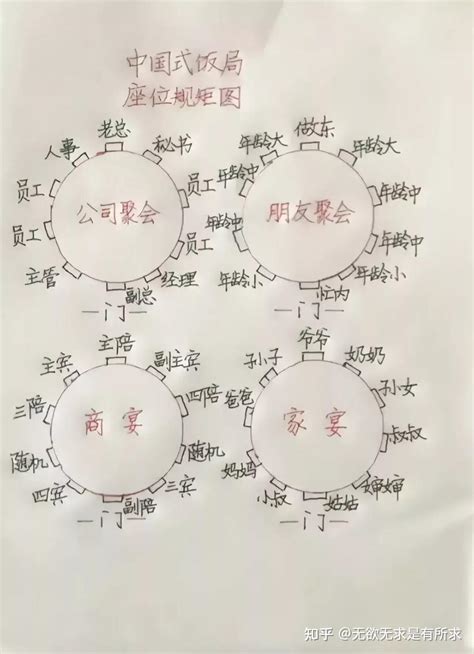 中国式饭局
座位规矩图
老总
人事
秘书
员工
员工
公司聚会
员工
员工
主管
经理
副总
门
做东
年龄大
年龄大
年龄中
年龄中
朋友聚会
年龄中
年龄中
年龄小
年龄小
忙内
门
主陪
主宾
副主宾
三陪
四陪
商宴
随机
随机
四宾
三宾
副陪
门
爷爷
孙子
奶奶
爸爸
孙女
家宴
叔叔
妈妈
婶婶
小叔
姑姑
门
知乎 @无欲无求是有所求